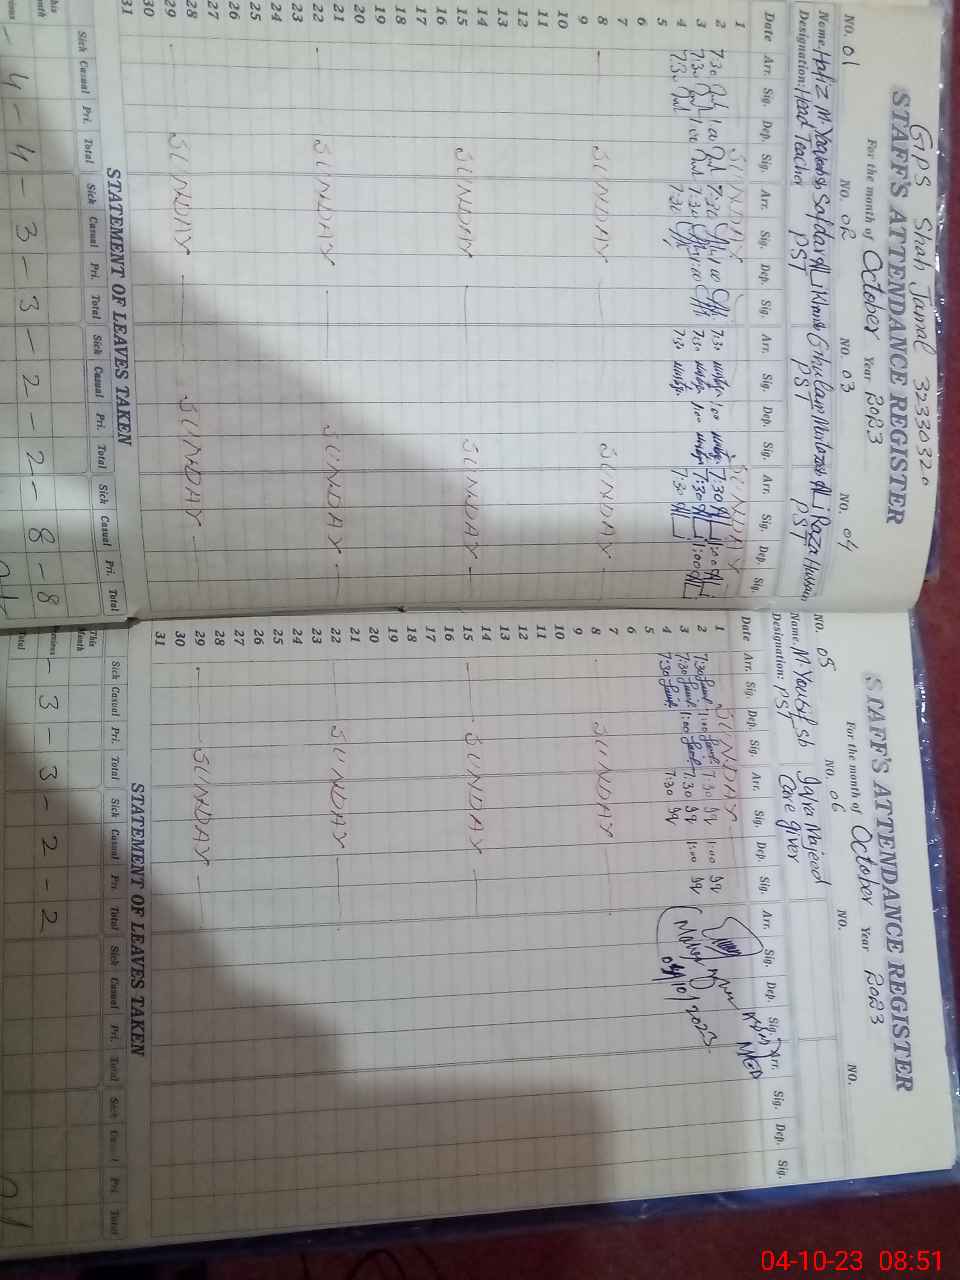 GPS Shah Jamal 32330320
STAFF'S ATTENDANCE REGISTER
For the month of October Year 2023
NO. 01 NO. 02 NO. 03 NO. 04
Name. Hafiz M. Safdar Ali Khan Ghulam Ali Raza Hussain
Designation: Head Teacher PST PST PST
Date Arr. Sig. Dep. Sig. Arr. Sig. Dep. Sig. Arr. Sig. Dep. Sig. Arr. Sig. Dep. Sig.
1 SUNDAY SUNDAY
2 7:30 1:00 7:30 1:00 7:30 1:00 7:30 1:00
3 7:30 1:00 7:30 1:00 7:30 1:00 7:30 1:00
4 7:30 7:30 7:30 7:30
5
6
7
8 SUNDAY SUNDAY
9
10
11
12
13
14
15 SUNDAY SUNDAY
16
17
18
19
20
21
22 SUNDAY SUNDAY
23
24
25
26
27
28
29 SUNDAY SUNDAY
30
31
STATEMENT OF LEAVES TAKEN
Sick Casual Pri. Total Sick Casual Pri. Total Sick Casual Pri. Total Sick Casual Pri. Total
- 4 - 4 - 3 - 3 - 2 - 2 - 8 - 8
STAFF'S ATTENDANCE REGISTER
For the month of October Year 2023
NO. 05 NO. 06 NO. NO.
Name. M. Yousif sb Iqra Majeed
Designation: PST Care giver
Date Arr. Sig. Dep. Sig. Arr. Sig. Dep. Sig. Arr. Sig. Dep. Sig. Arr. Sig. Dep. Sig.
1 SUNDAY
2 7:30 1:00 7:30 1:00
3 7:30 1:00 7:30 1:00
4 7:30 7:30
5
6
7
8 SUNDAY
9
10
11
12
13
14
15 SUNDAY
16
17
18
19
20
21
22 SUNDAY
23
24
25
26
27
28
29 SUNDAY
30
31
04/10/2023
STATEMENT OF LEAVES TAKEN
Sick Casual Pri. Total Sick Casual Pri. Total Sick Casual Pri. Total Sick Pri. Total
This Month
- 3 - 3 - 2 - 2
Total
04-10-23 08:51